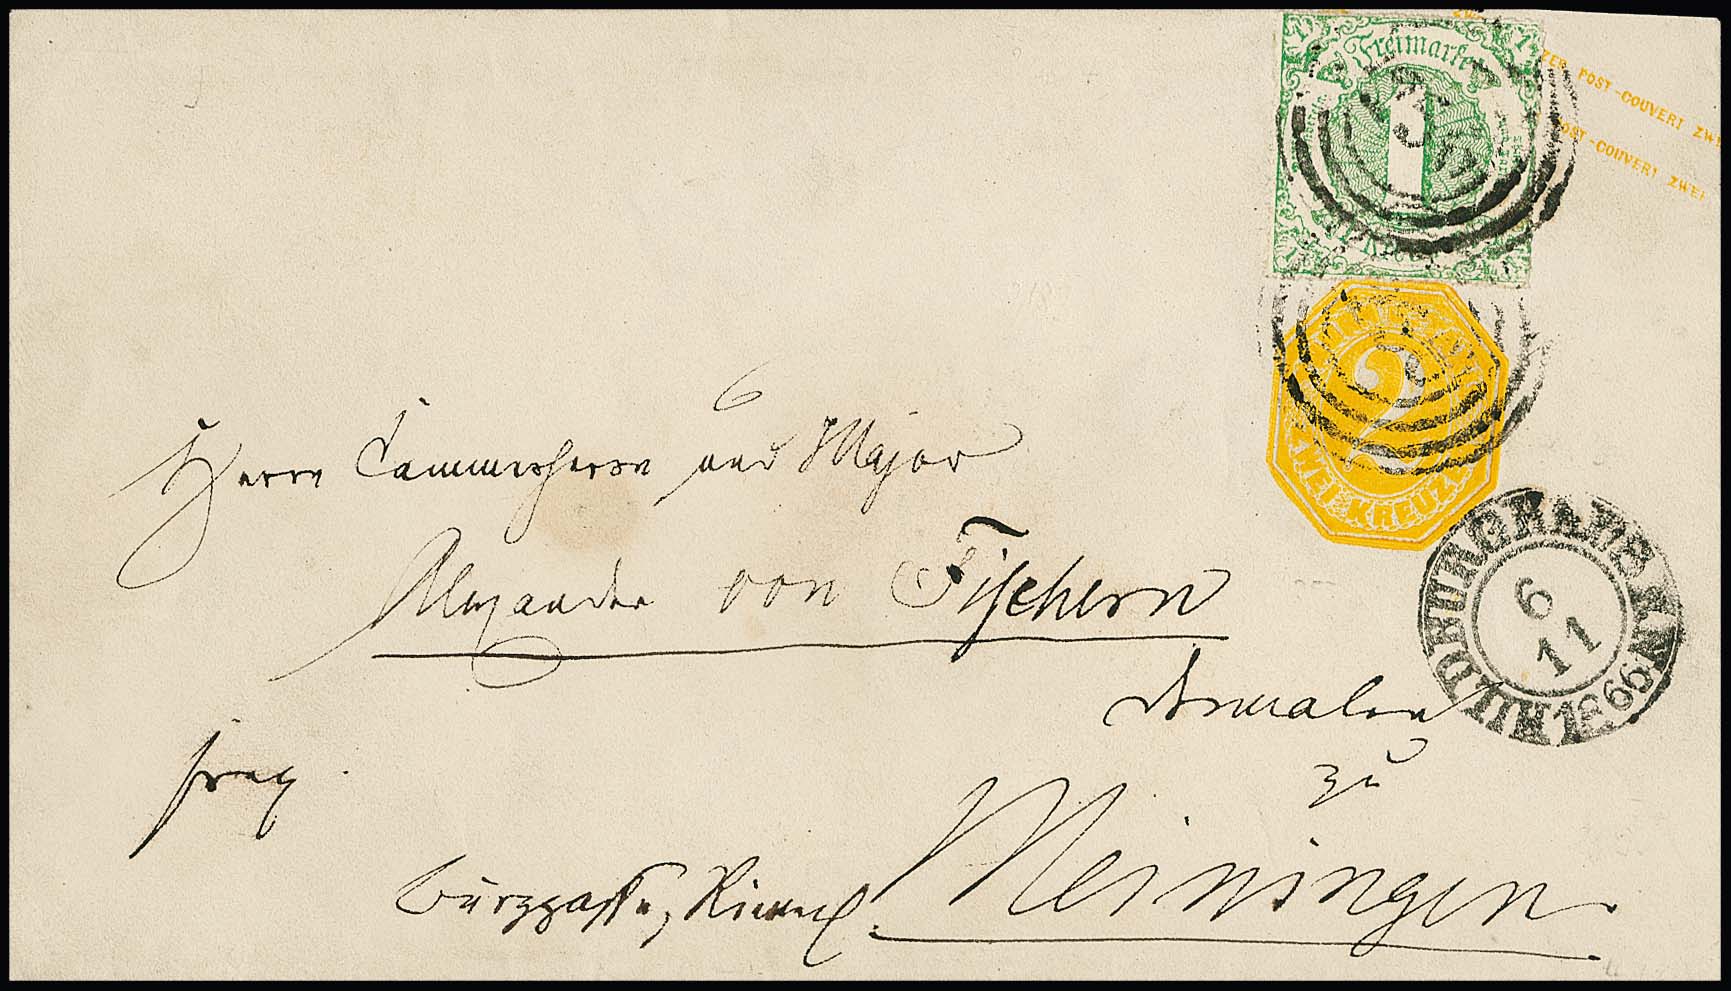 ZWEI
ZER POST-COUVERT ZWEI
POST-COUVERT ZWEI
Freimarke
1
2
ZWEI KREUZ.
HILDBURGHAUSEN
6
11
1866
Herrn Cammerherrn und Major
Alexander von Fischern
zu
frey.
Burggasse, Meiningen